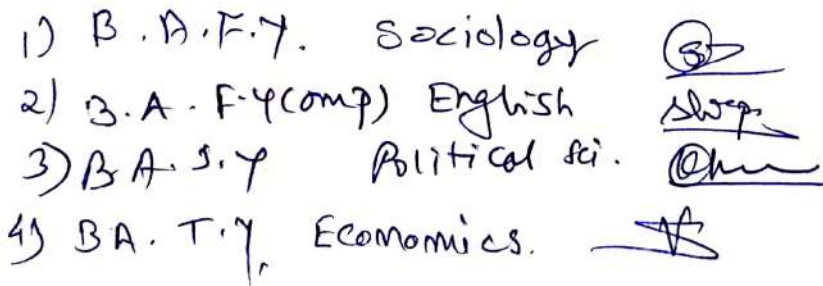 1) B.A.F.Y. Sociology
2) B.A. F.Y (comp) English
3) B A. S.Y Political Sci.
4) BA. T.Y. Economics.